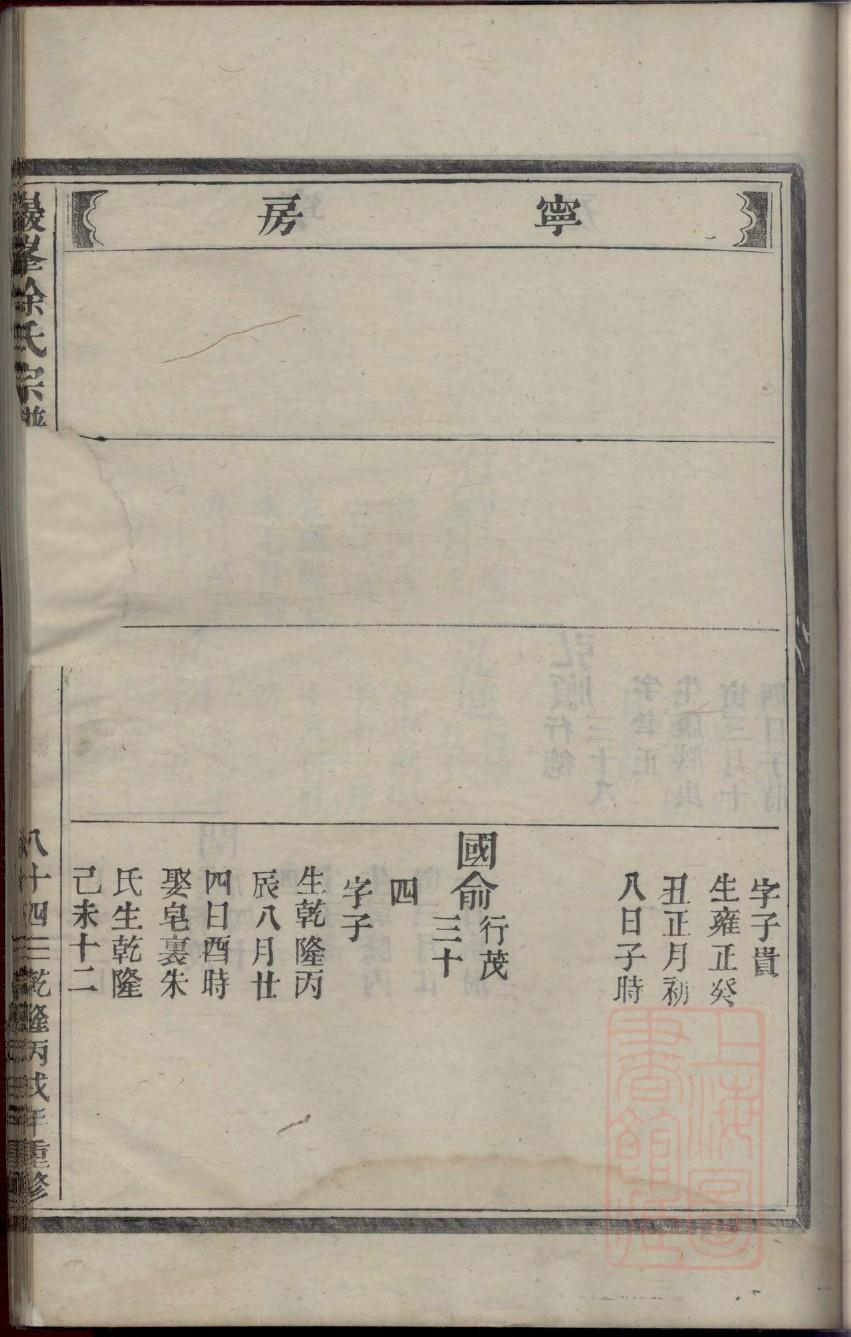 寧房
字子貴
生雍正癸
丑正月初
八日子時
國俞行茂
三十
四
字子
生乾隆丙
辰八月廿
四日酉時
娶皂裏朱
氏生乾隆
己未十二
峯徐氏宗
八十四
乾隆丙戌年重修
上海圖書館藏